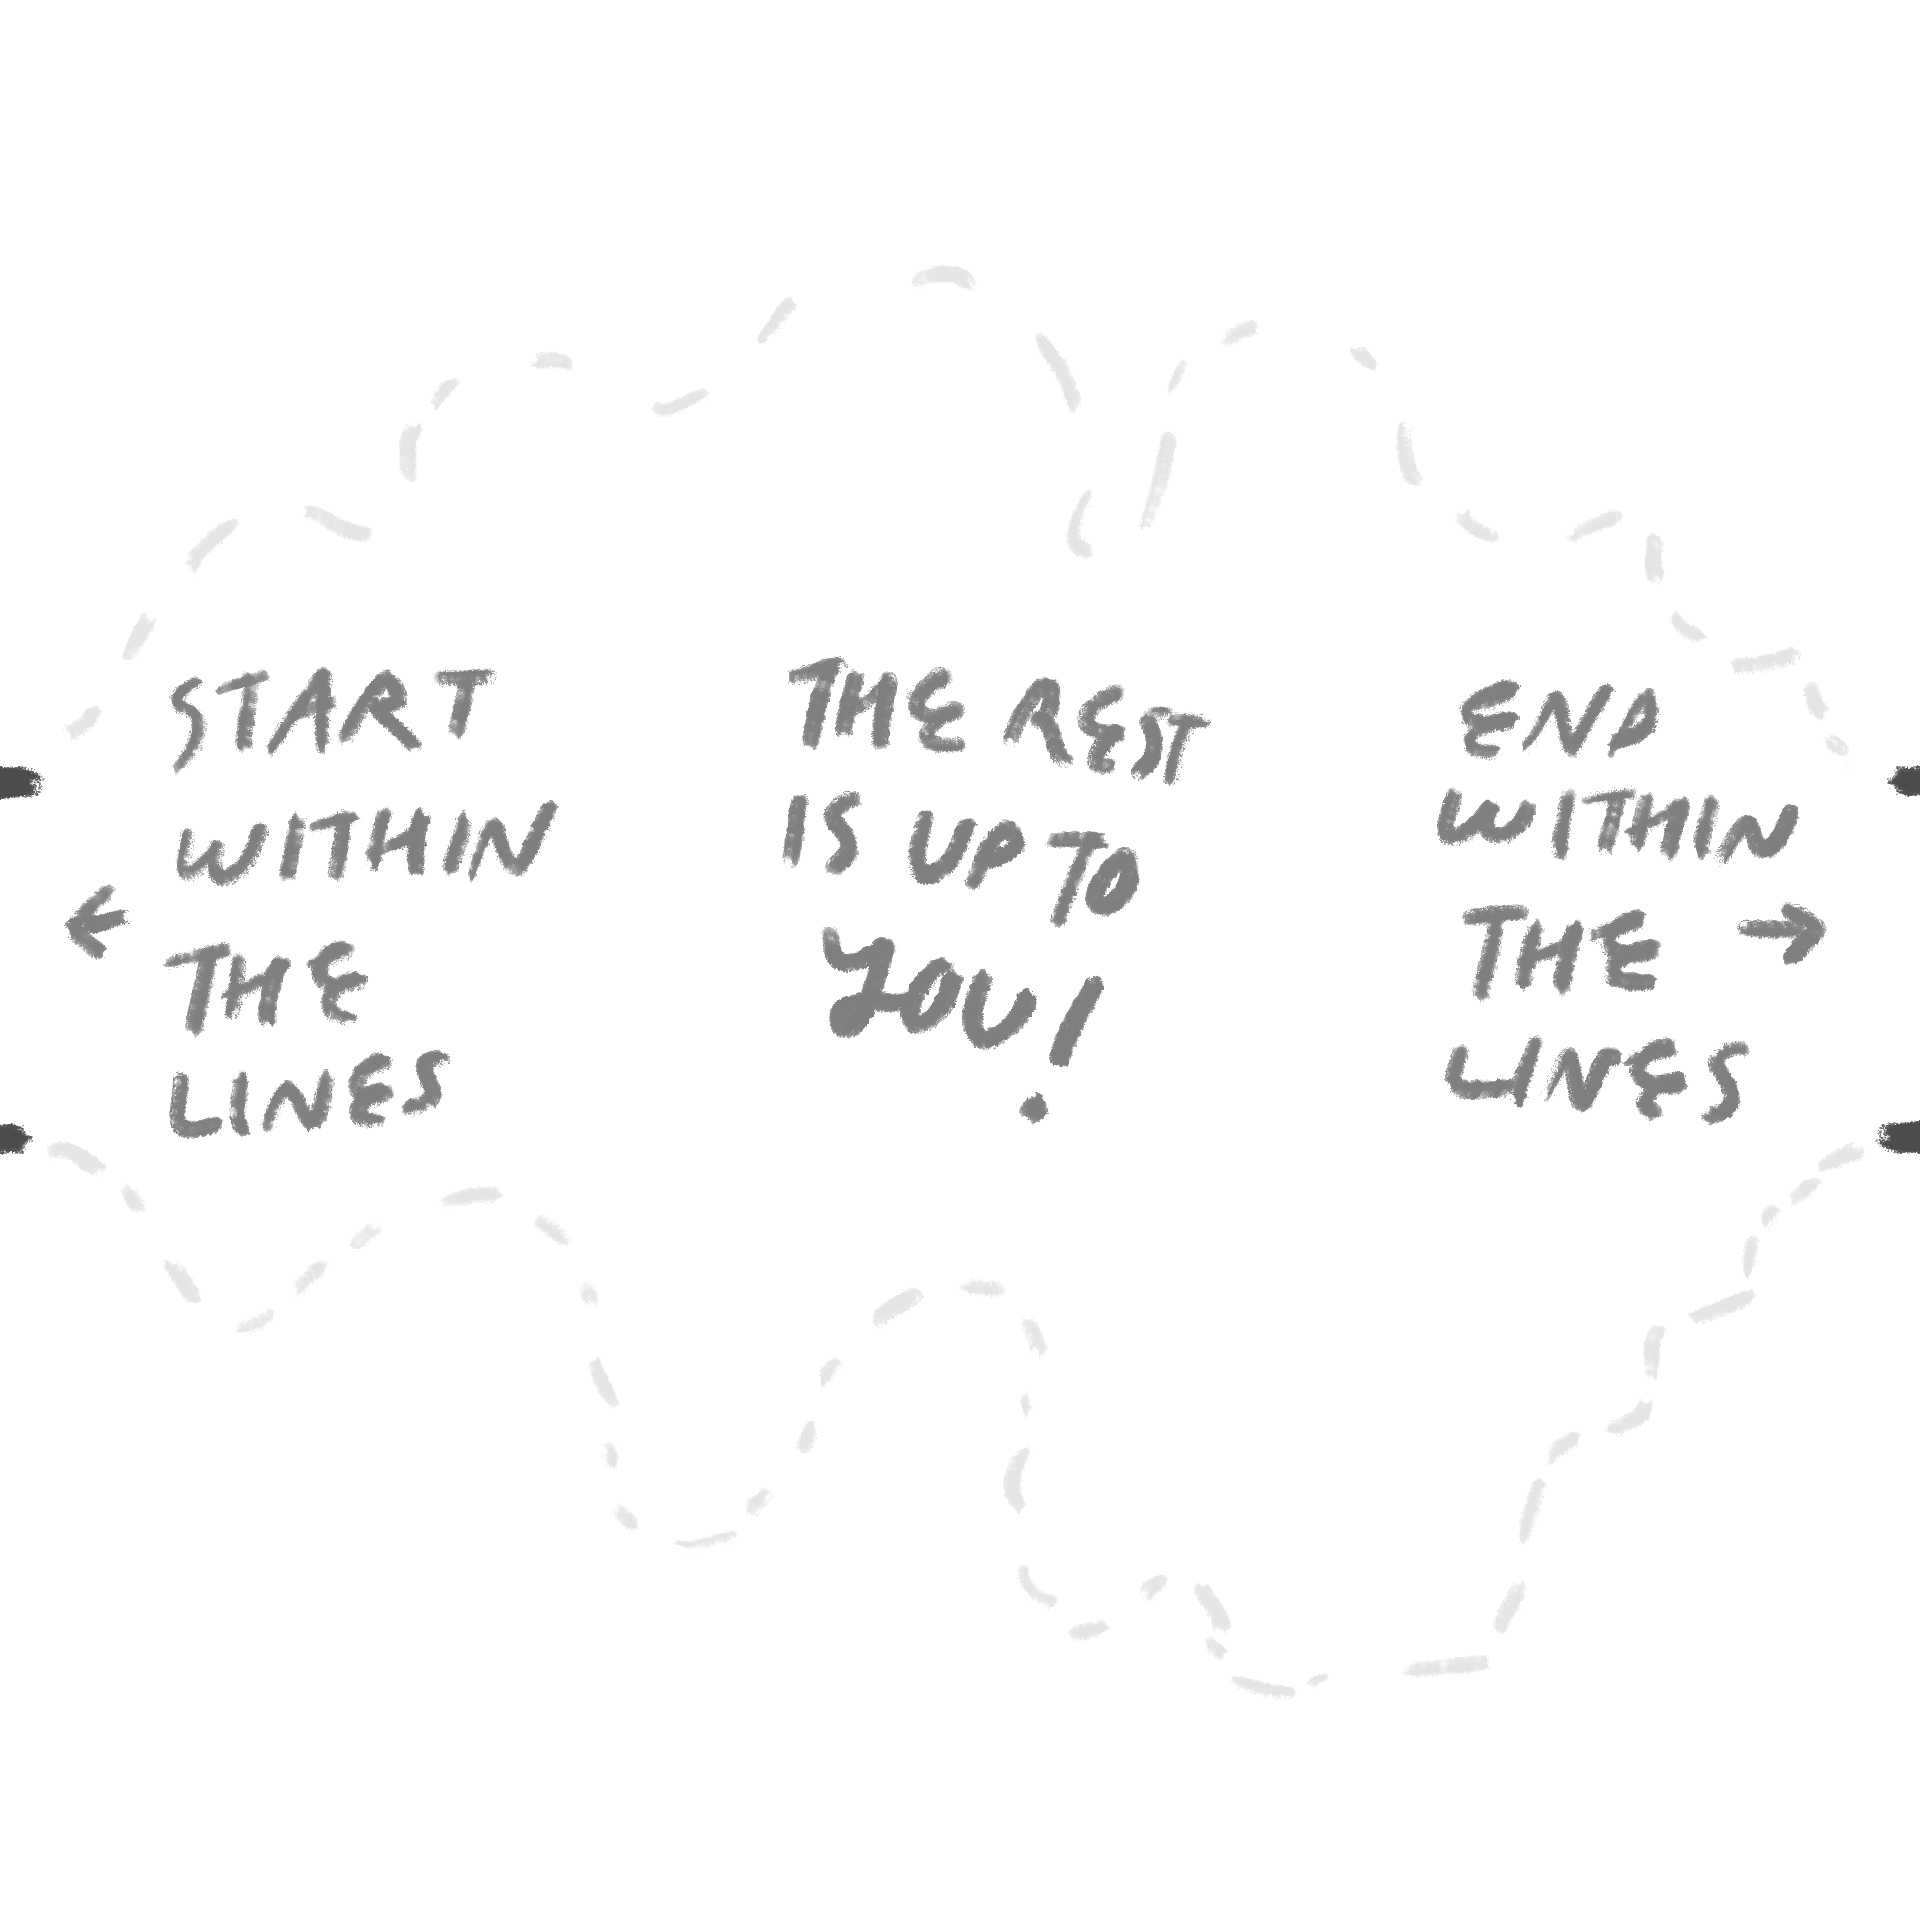 START
WITHIN
THE
LINES
THE REST
IS UP TO
YOU!
END
WITHIN
THE
LINES